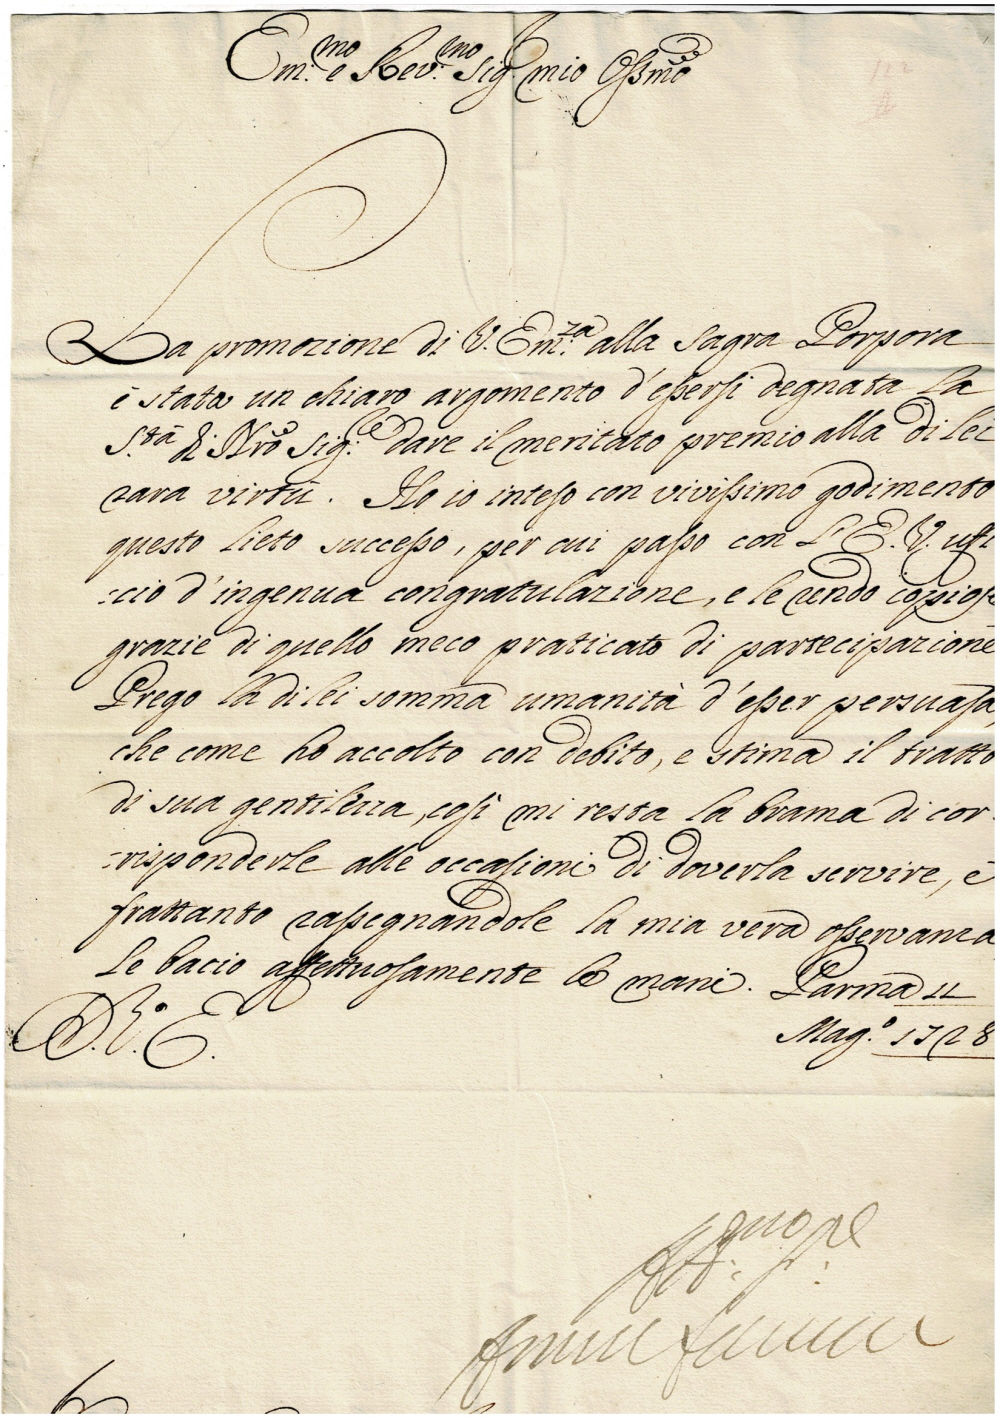 Em.mo e Rev.mo Sig. mio Ossmo
La promozione di V. Em.za alla sagra Porpora
è stata un chiaro argomento d'essersi degnata la
S.tà di Nro Sig.e dare il meritato premio alla di lei
rara virtù. Ho io inteso con vivissimo godimento
questo lieto successo, per cui passo con l'E. V. uffi
:cio d'ingenua congratulazione, e le rendo copiose
grazie di quello meco praticato di partecipazione
Prego la di lei somma umanità d'esser persuasa,
che come ho accolto con debito, e stima il tratto
di sua gentilezza, così mi resta la brama di cor:
:risponderle alle occasioni di doverla servire, e
frattanto rassegnandole la mia vera osservanza
le bacio affettuosamente le mani. Parma 11
Mag.o 1728
D. V. E.